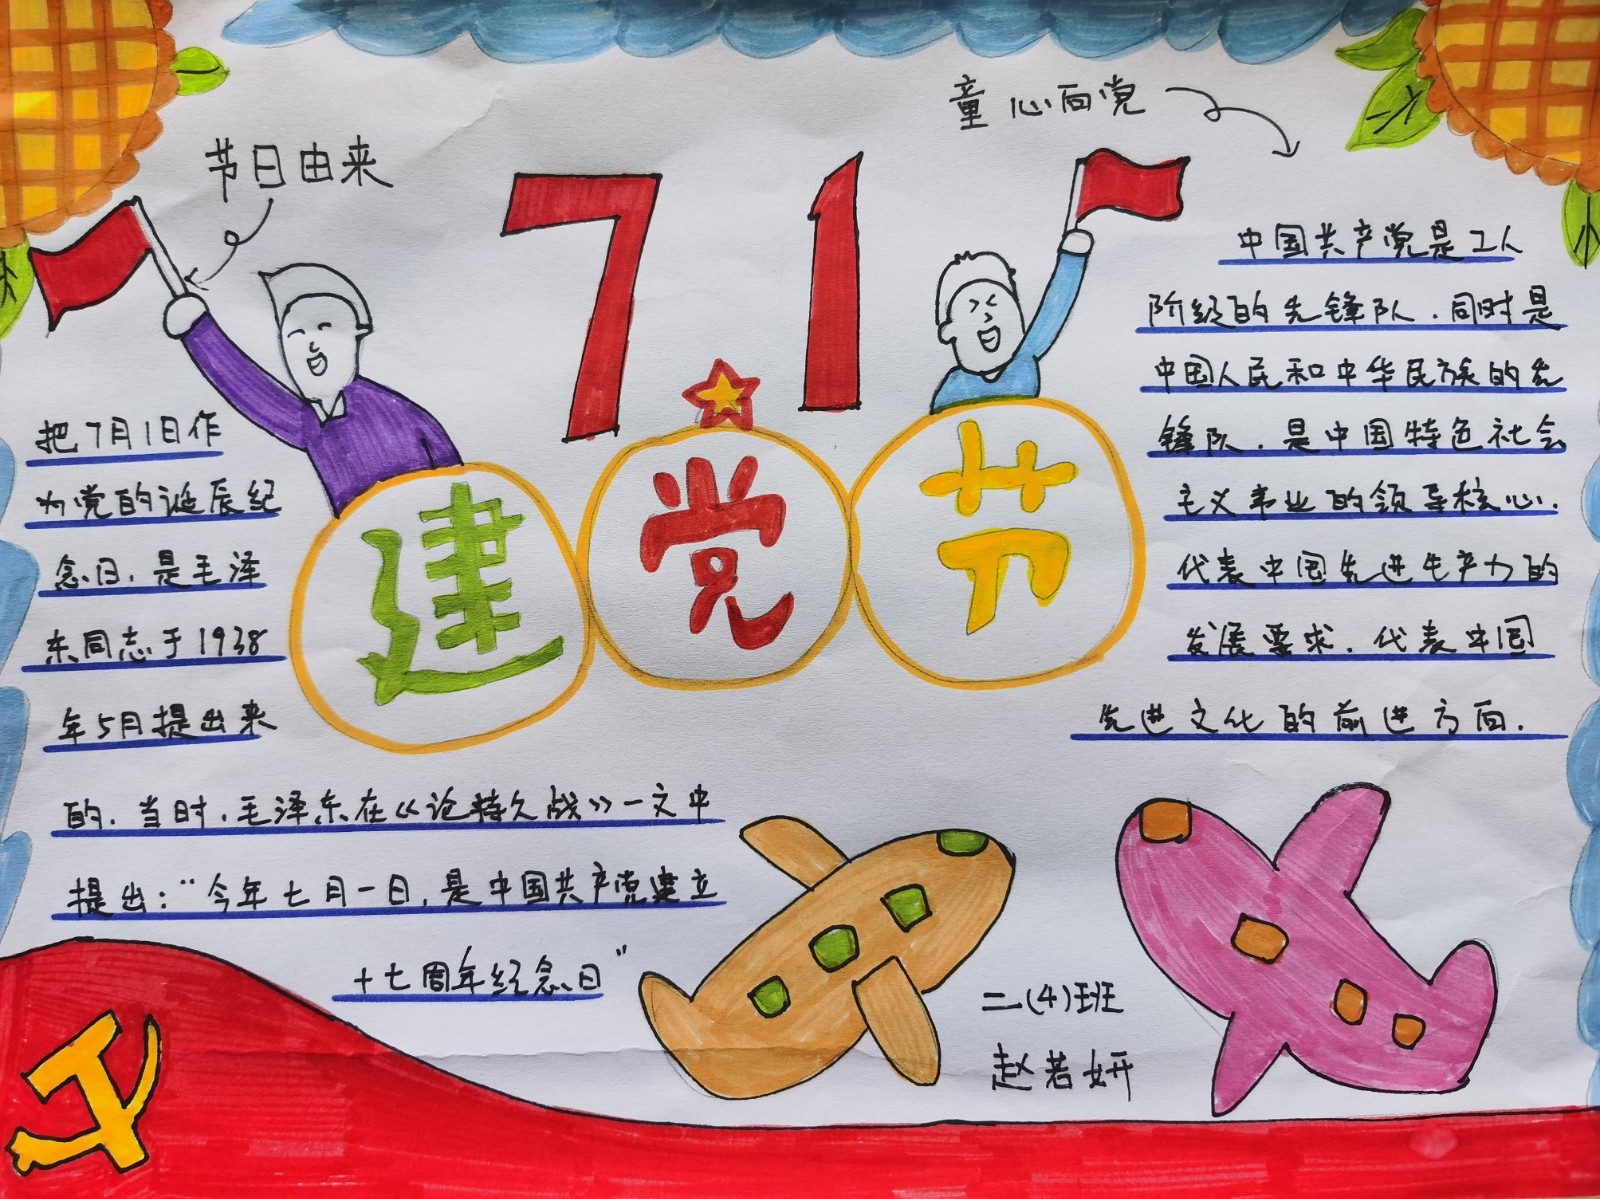 节日由来
童心向党
7.1
建党节
把7月1日作
为党的诞辰纪
念日，是毛泽
东同志于1938
年5月提出来
的，当时，毛泽东在《论持久战》一文中
提出：“今年七月一日，是中国共产党建立
十七周年纪念日”
中国共产党是工人
阶级的先锋队，同时是
中国人民和中华民族的先
锋队，是中国特色社会
主义事业的领导核心，
代表中国先进生产力的
发展要求，代表中国
先进文化的前进方向．
二(4)班
赵若妍